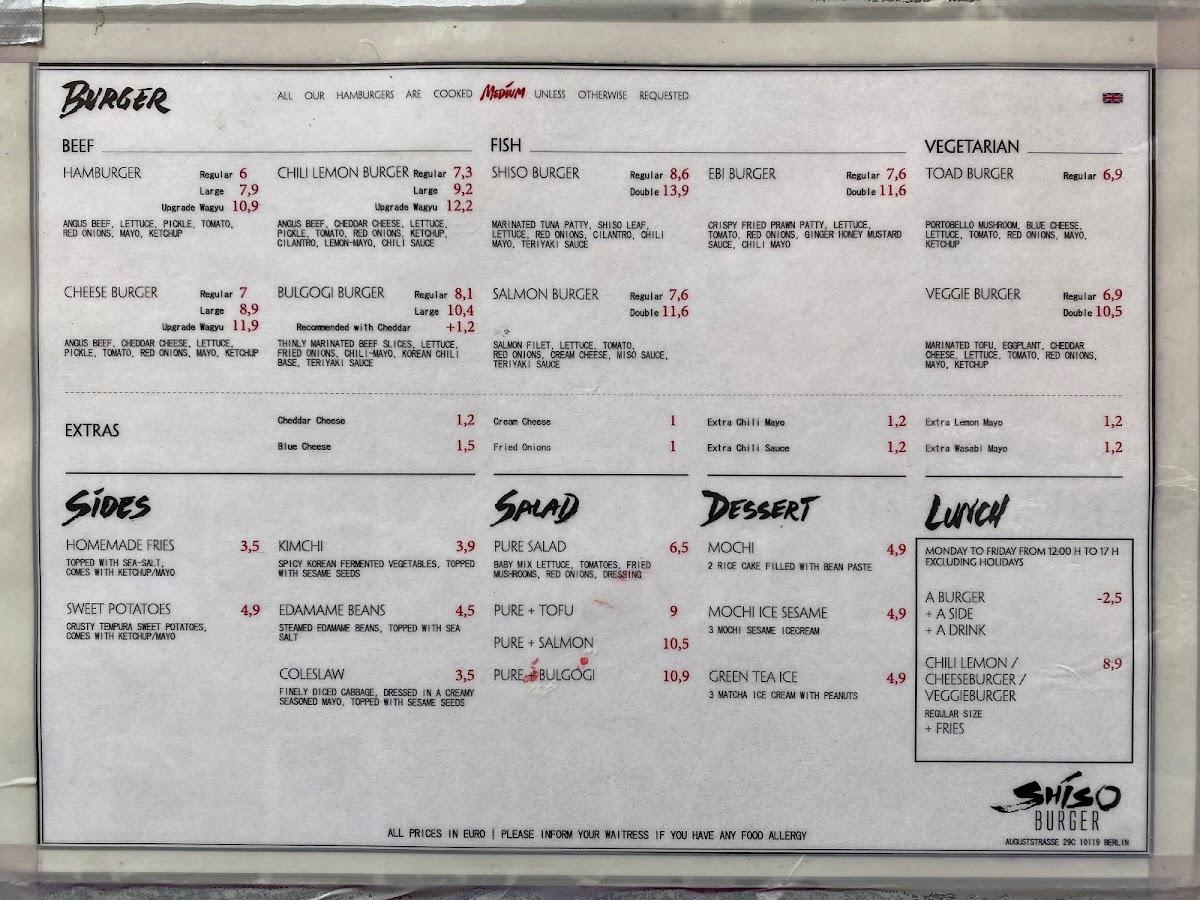 BURGER
ALL OUR HAMBURGERS ARE COOKED MEDIUM UNLESS OTHERWISE REQUESTED
BEEF
HAMBURGER Regular 6
Large 7,9
Upgrade Wagyu 10,9
ANGUS BEEF, LETTUCE, PICKLE, TOMATO,
RED ONIONS, MAYO, KETCHUP
CHILI LEMON BURGER Regular 7,3
Large 9,2
Upgrade Wagyu 12,2
ANGUS BEEF, CHEDDAR CHEESE, LETTUCE,
PICKLE, TOMATO, RED ONIONS, KETCHUP,
CILANTRO, LEMON-MAYO, CHILI SAUCE
CHEESE BURGER Regular 7
Large 8,9
Upgrade Wagyu 11,9
ANGUS BEEF, CHEDDAR CHEESE, LETTUCE,
PICKLE, TOMATO, RED ONIONS, MAYO, KETCHUP
BULGOGI BURGER Regular 8,1
Large 10,4
Recommended with Cheddar +1,2
THINLY MARINATED BEEF SLICES, LETTUCE,
FRIED ONIONS, CHILI-MAYO, KOREAN CHILI
BASE, TERIYAKI SAUCE
FISH
SHISO BURGER Regular 8,6
Double 13,9
MARINATED TUNA PATTY, SHISO LEAF,
LETTUCE, RED ONIONS, CILANTRO, CHILI
MAYO, TERIYAKI SAUCE
EBI BURGER Regular 7,6
Double 11,6
CRISPY FRIED PRAWN PATTY, LETTUCE,
TOMATO, RED ONIONS, GINGER HONEY MUSTARD
SAUCE, CHILI MAYO
SALMON BURGER Regular 7,6
Double 11,6
SALMON FILET, LETTUCE, TOMATO,
RED ONIONS, CREAM CHEESE, MISO SAUCE,
TERIYAKI SAUCE
VEGETARIAN
TOAD BURGER Regular 6,9
PORTOBELLO MUSHROOM, BLUE CHEESE,
LETTUCE, TOMATO, RED ONIONS, MAYO,
KETCHUP
VEGGIE BURGER Regular 6,9
Double 10,5
MARINATED TOFU, EGGPLANT, CHEDDAR
CHEESE, LETTUCE, TOMATO, RED ONIONS,
MAYO, KETCHUP
EXTRAS
Cheddar Cheese 1,2
Blue Cheese 1,5
Cream Cheese 1
Fried Onions 1
Extra Chili Mayo 1,2
Extra Chili Sauce 1,2
Extra Lemon Mayo 1,2
Extra Wasabi Mayo 1,2
SIDES
HOMEMADE FRIES 3,5
TOPPED WITH SEA-SALT,
COMES WITH KETCHUP/MAYO
SWEET POTATOES 4,9
CRUSTY TEMPURA SWEET POTATOES,
COMES WITH KETCHUP/MAYO
KIMCHI 3,9
SPICY KOREAN FERMENTED VEGETABLES, TOPPED
WITH SESAME SEEDS
EDAMAME BEANS 4,5
STEAMED EDAMAME BEANS, TOPPED WITH SEA
SALT
COLESLAW 3,5
FINELY DICED CABBAGE, DRESSED IN A CREAMY
SEASONED MAYO, TOPPED WITH SESAME SEEDS
SALAD
PURE SALAD 6,5
BABY MIX LETTUCE, TOMATOES, FRIED
MUSHROOMS, RED ONIONS, DRESSING
PURE + TOFU 9
PURE + SALMON 10,5
PURE + BULGOGI 10,9
DESSERT
MOCHI 4,9
2 RICE CAKE FILLED WITH BEAN PASTE
MOCHI ICE SESAME 4,9
3 MOCHI SESAME ICECREAM
GREEN TEA ICE 4,9
3 MATCHA ICE CREAM WITH PEANUTS
LUNCH
MONDAY TO FRIDAY FROM 12:00 H TO 17 H
EXCLUDING HOLIDAYS
A BURGER -2,5
+ A SIDE
+ A DRINK
CHILI LEMON / 8,9
CHEESEBURGER /
VEGGIEBURGER
REGULAR SIZE
+ FRIES
SHISO
BURGER
AUGUSTSTRASSE 29C 10119 BERLIN
ALL PRICES IN EURO | PLEASE INFORM YOUR WAITRESS IF YOU HAVE ANY FOOD ALLERGY